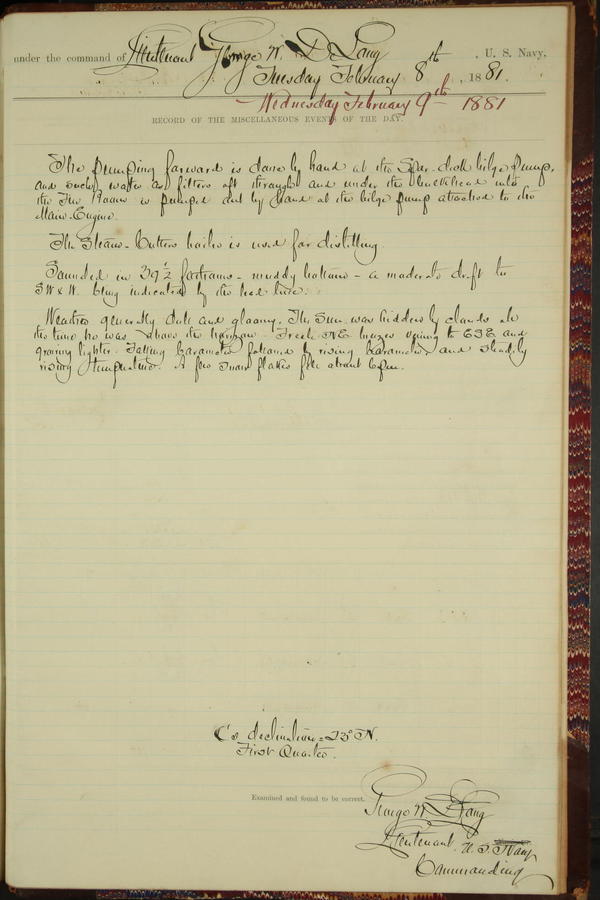 under the command of Lieutenant George W. De Long , U. S. Navy,
Tuesday February 8th , 1881.
Wednesday February 9th 1881
RECORD OF THE MISCELLANEOUS EVENTS OF THE DAY.
The pumping forward is done by hand at the Spar-deck bilge pump,
and such water as filters aft through and under the bulkhead into
the Fire Room is pumped out by hand at the bilge pump attached to the
Main Engine.
The Steam-Cutters boiler is used for distilling.
Sounded in 39½ fathoms - muddy bottom - a moderate drift to
SW x W. being indicated by the lead line.
Weather generally dull and gloomy. The sun was hidden by clouds at
the time he was above the horizon. Fresh NE breezes veering to ESE and
growing lighter. Falling barometer followed by rising barometer and steadily
rising temperature. A few snow flakes fell about 6 pm.
C's declination = 23° N.
First Quarter.
Examined and found to be correct.
George W. De Long
Lieutenant U. S. Navy
Commanding